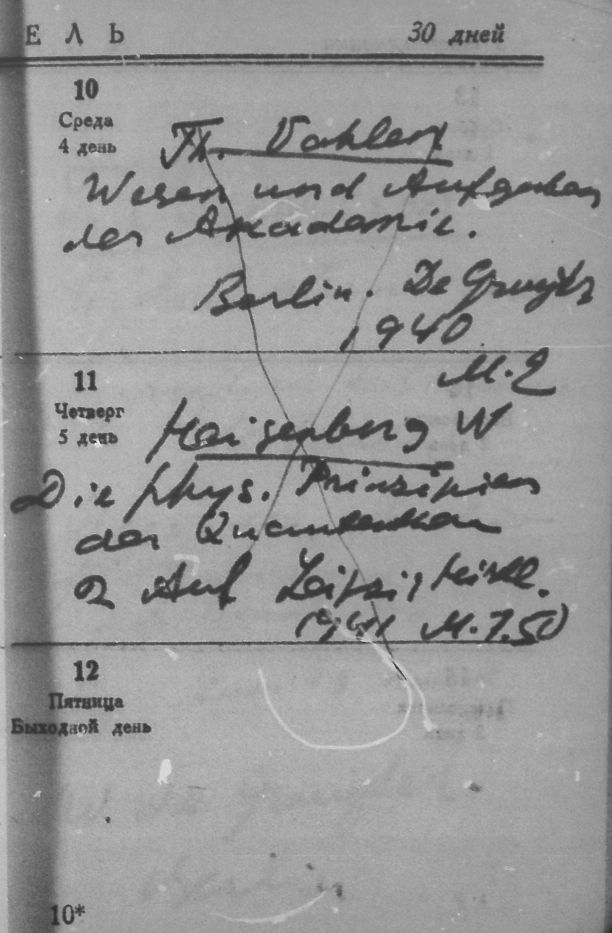 ЕЛЬ 30 дней
10
Среда
4 день
Th. Vahlen
Wesen und Aufgaben
der Akademie.
Berlin. De Gruyter
1940
M. 2
11
Четверг
5 день
Heisenberg W
Die phys. Prinzipien
der Quanten
2 Auf Leipzig Hirzel.
1941 M. 7.50
12
Пятница
Выходной день
10*